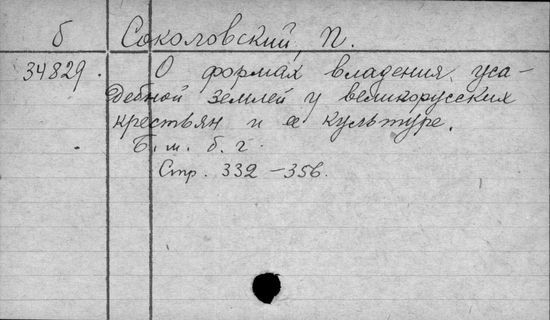 б Соколовский, П.
34829. О формах владения уса-
дебной землей у великорусских
крестьян и ее культуре.
Б. м. б. г.
Стр. 332-356.